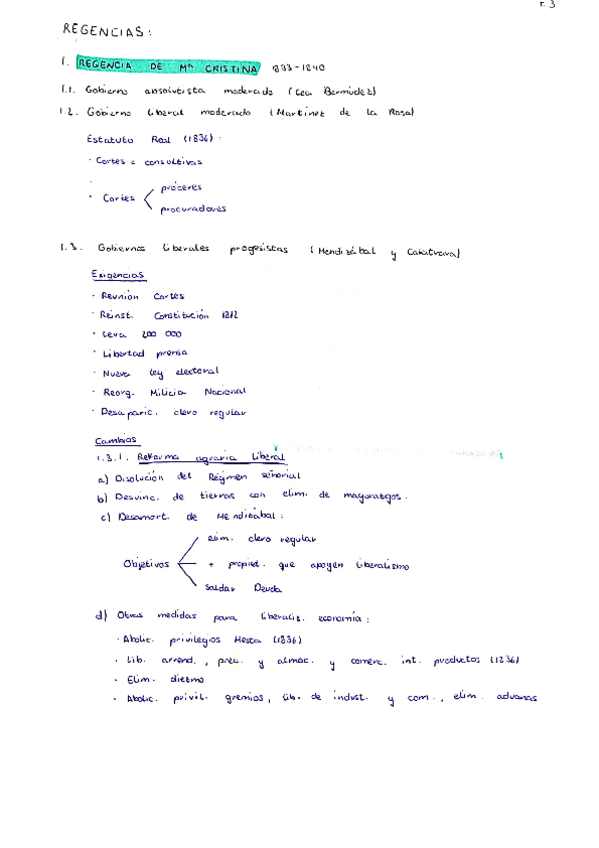 T. 3
REGENCIAS:
1. REGENCIA DE Mª CRISTINA 1833-1840
1.1. Gobierno absolutista moderado (Cea Bermúdez)
1.2. Gobierno liberal moderado (Martínez de la Rosa)
Estatuto Real (1836):
· Cortes = consultivas
· Cortes
próceres
procuradores
1.3. Gobiernos liberales progesistas (Mendizábal y Calatrava)
Exigencias
· Reunión Cortes
· Reinst. Constitución 1812
· Leva 200 000
· Libertad prensa
· Nueva ley electoral
· Reorg. Milicia Nacional
· Desaparic. clero regular
Cambios
1.3.1. Reforma agraria liberal
a) Disolución del Régimen señorial
b) Desvinc. de tierras con elim. de mayorazgos.
c) Desamort. de Mendizábal:
Objetivos
elim. clero regular
+ propied. que apoyen liberalismo
saldar Deuda
d) Otras medidas para liberaliz. economía:
· Abolic. privilegios Mesta (1836)
· Lib. arrend., prec. y almac. y comerc. int. productos (1836)
· Elim. diezmo
· Abolic. privil. gremios, lib. de indust. y com., elim. aduanas